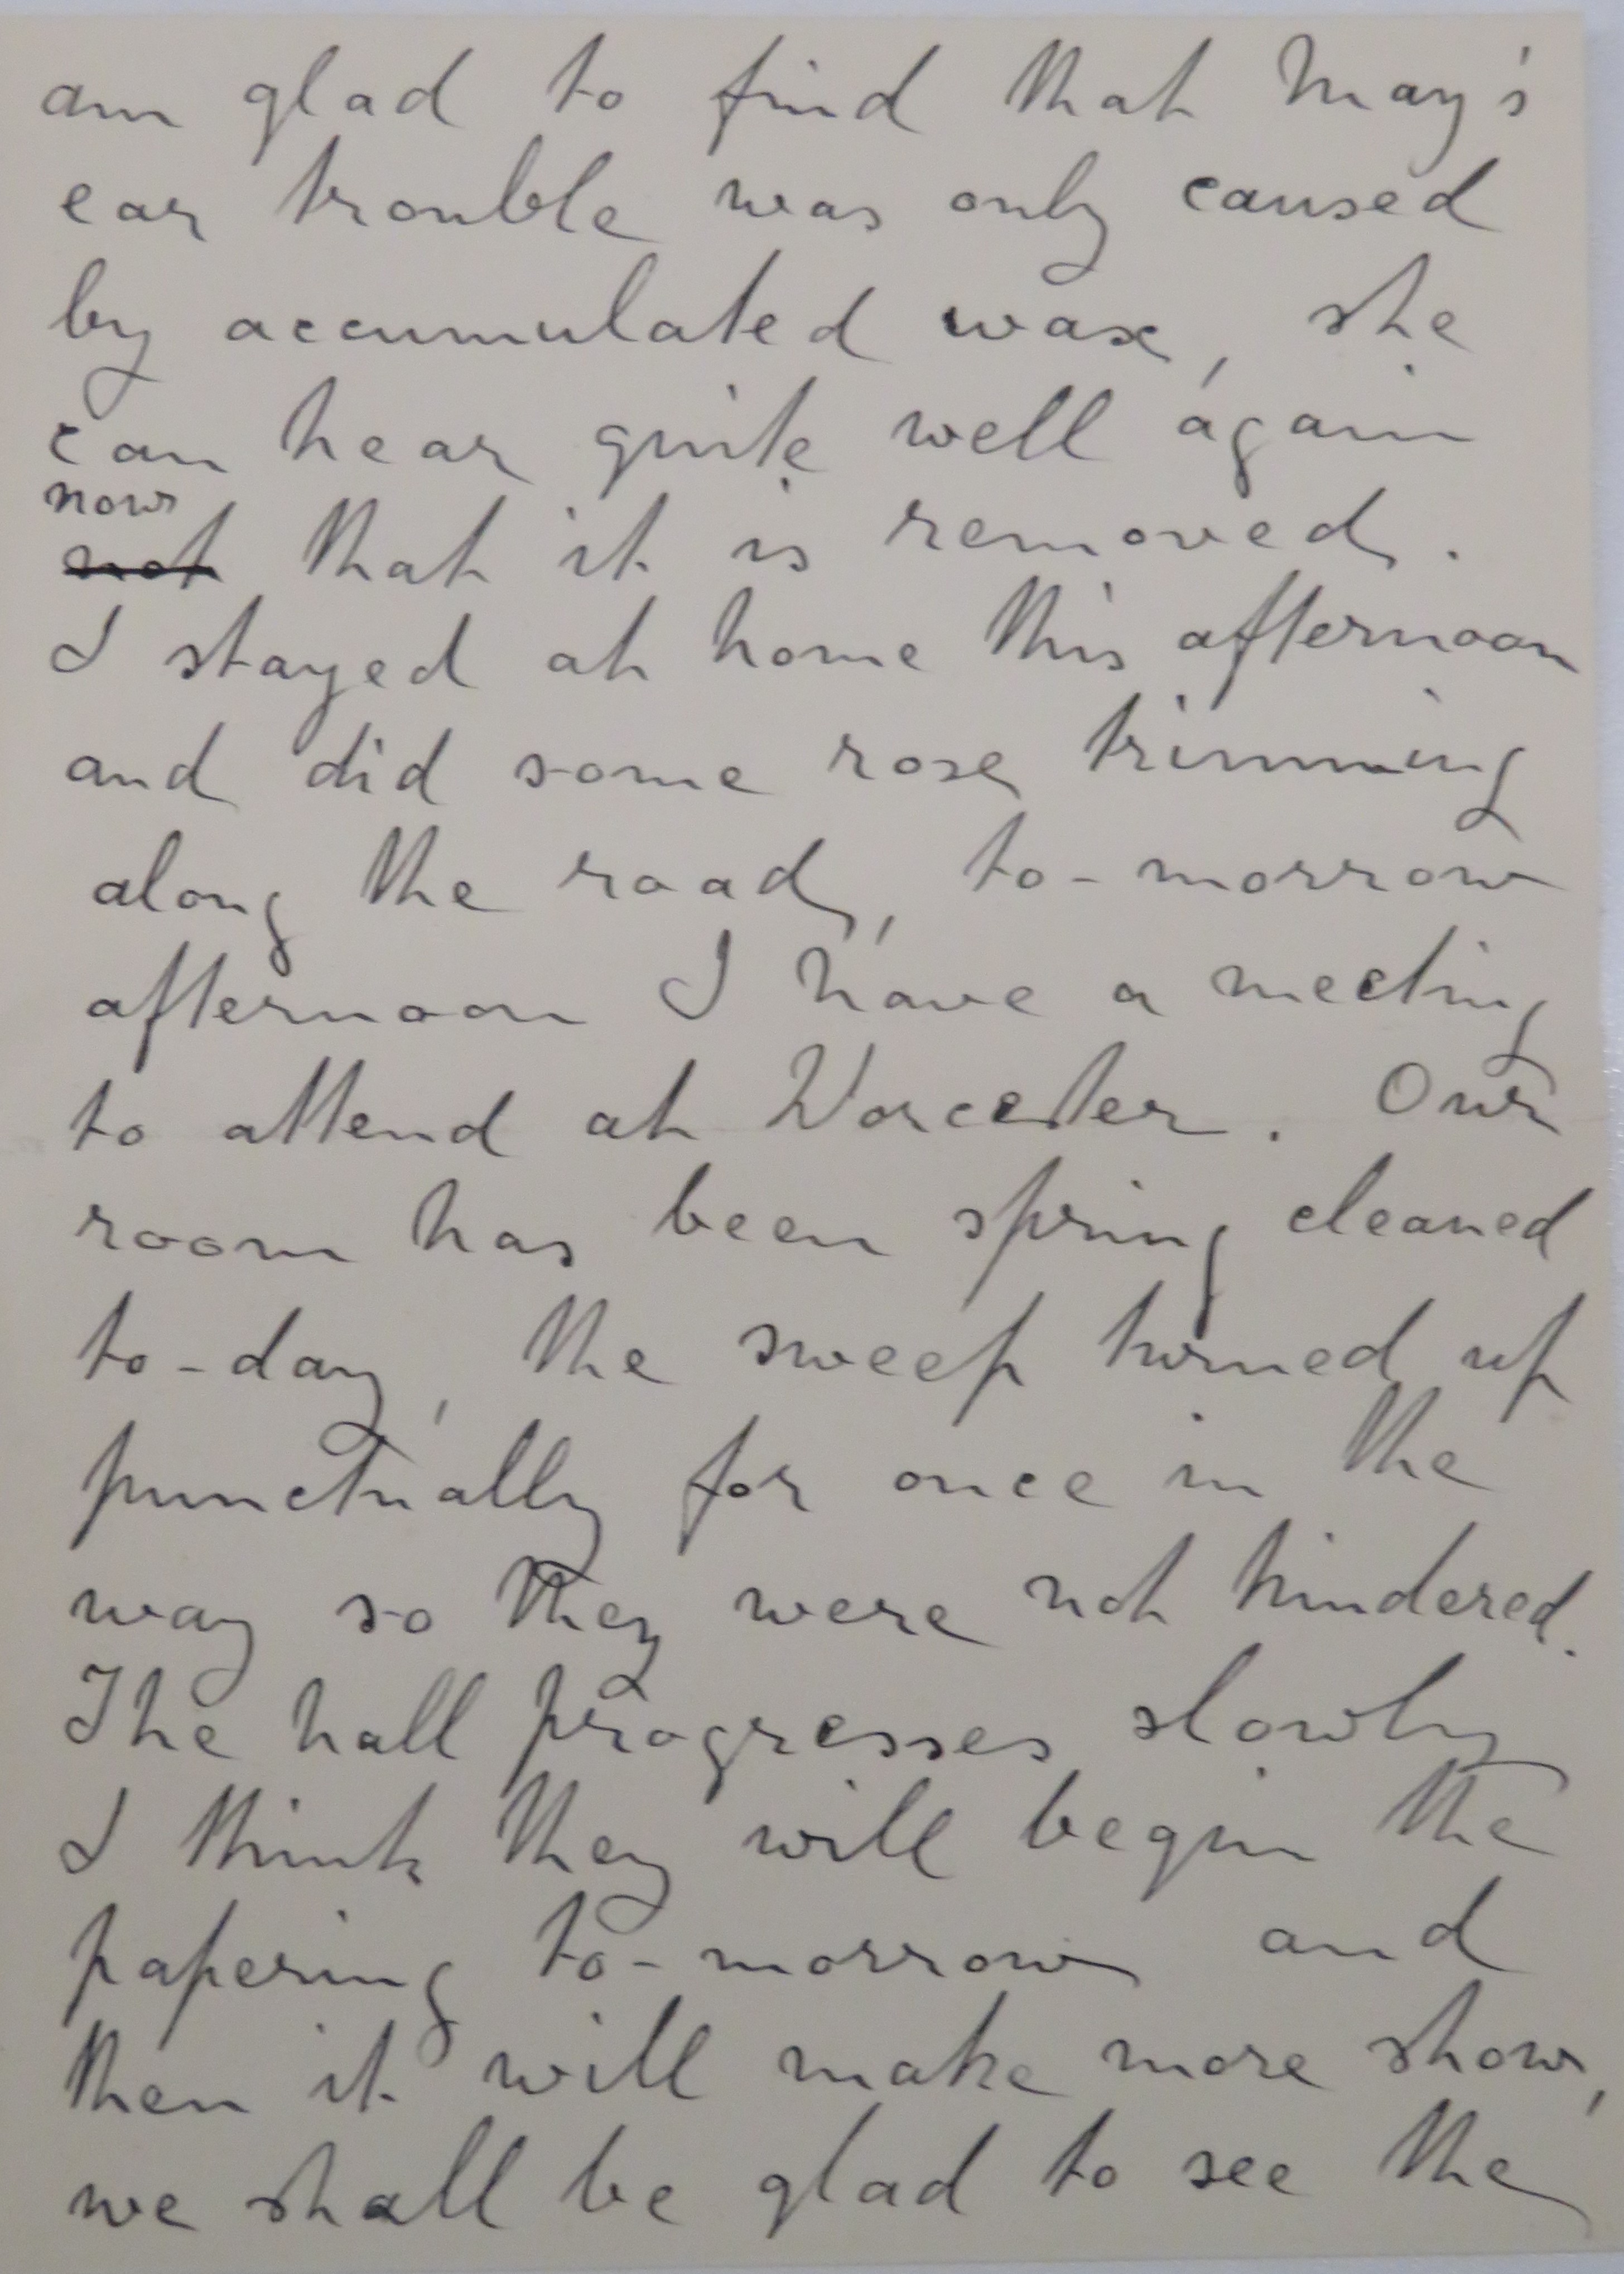 am glad to find that May's
ear trouble was only caused
by accumulated wax, she
can hear quite well again
now
not that it is removed.
I stayed at home this afternoon
and did some rose trimming
along the road, to-morrow
afternoon I have a meeting
to attend at Worcester. Our
room has been spring cleaned
to-day, the sweep turned up
punctually for once in the
way so they were not hindered.
The hall progresses slowly
I think they will begin the
papering to-morrow and
then it will make more show,
we shall be glad to see the